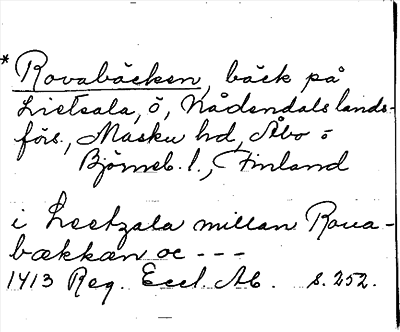 * Rovabäcken, bäck på
Lietsala, ö, Nådendals lands-
förs., Masku hd, Åbo o
Björneb. l., Finland
i Leetzala millan Roua-
bækkæn oc - - -
1413 Reg. Eccl. Ab. s. 252.